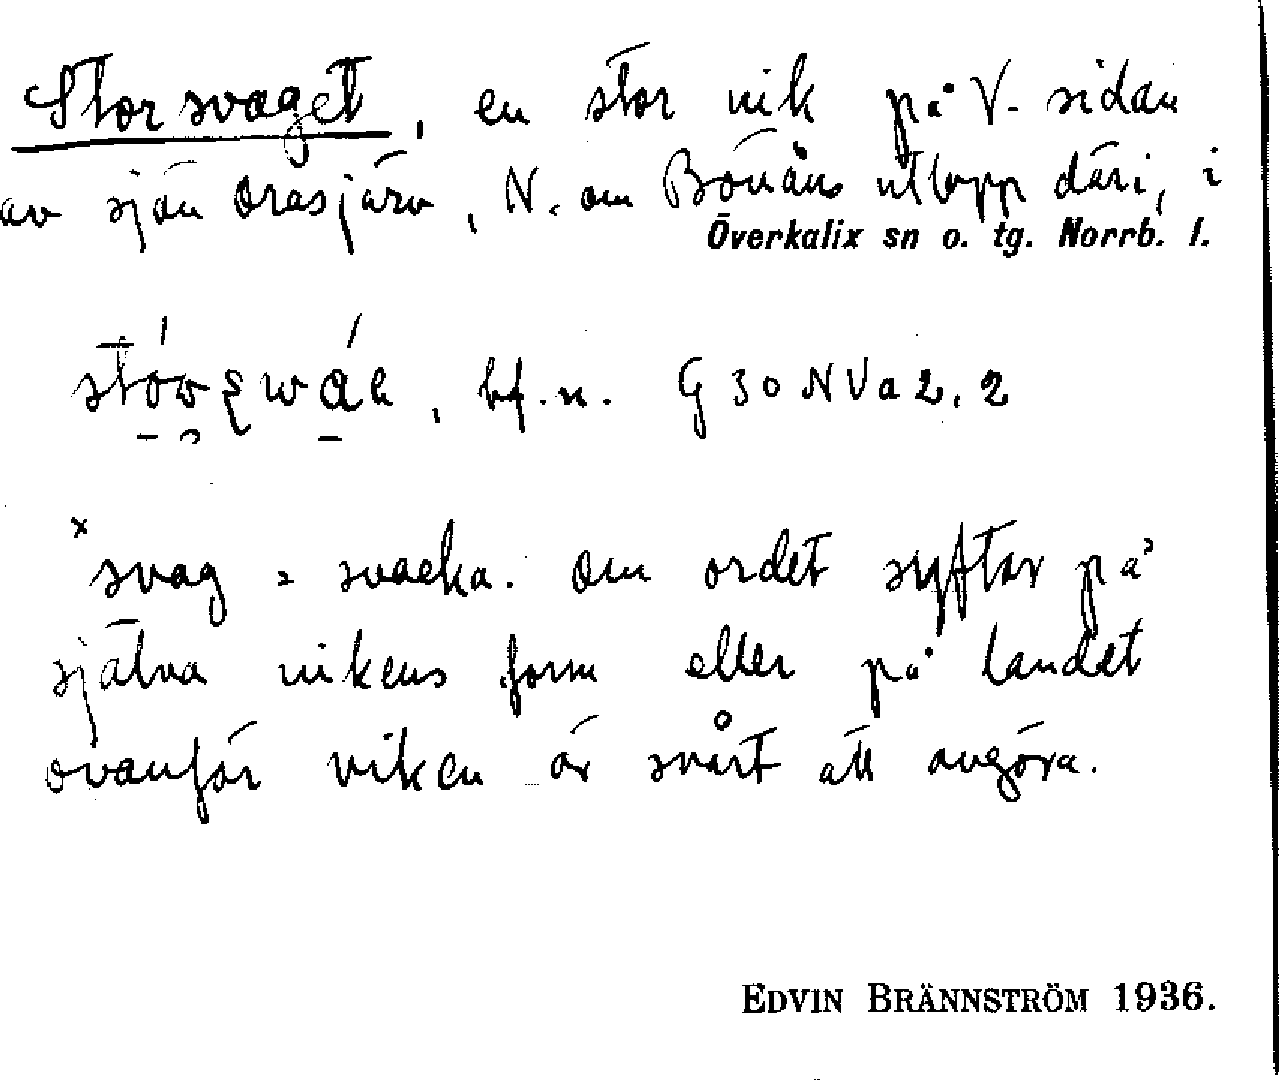 Storsvaget, en stor vik på V. sidan
av sjön Orasjärv, N. om Bönåns utlopp däri, i
Överkalix sn o. tg. Norrb. l.
bf. n. G 30 N V a 2, 2
×svag = svacka. Om ordet syftar på
själva vikens form eller på landet
ovanför viken är svårt att avgöra.
EDVIN BRÄNNSTRÖM 1936.